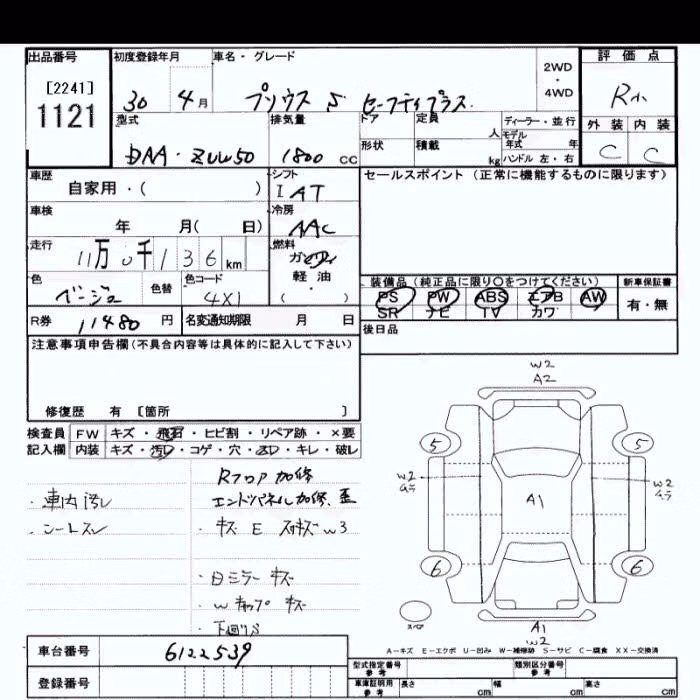 出品番号 初度登録年月 車名・グレード 評価点
[2241]
1121
30 4月 プリウス S セーフティプラス 2WD・4WD R
型式 排気量 ドア 定員 人 ディーラー・並行 外装 内装
DAA・ZVW50 1800 CC 形状 積載 kg モデル年式 年 ハンドル 左・右 C C
車歴 シフト セールスポイント (正常に機能するものに限ります)
自家用・( ) IAT
車検 冷房
年 月( 日) AAC
走行 燃料
11万0千136km ガソリン
色 色替 色コード 軽・油 装備品 (純正品に限り○をつけてください) 新車保証書
ベージュ 4X1 ・( ) PS PW ABS エアB AW 有・無
SR ナビ TV カワ
R券 11480 円 名変通知期限 月 日 後日品
注意事項申告欄(不具合内容等は具体的に記入して下さい)
修復歴 有 [箇所 ]
検査員 FW キズ・飛石・ヒビ割・リペア跡・×要
記入欄 内装 キズ・汚レ・コゲ・穴・スレ・キレ・破レ
Rフロア加修
・車内汚レ エンドパネル加修、歪
・シートスレ ・キズ E スリキズ W3
・日ミラー キズ
・Wキャップ キズ
・下回りS
W2
A2
5 5
W2 W2
A1
6 6
A1
W2
A-キズ E-エクボ U-凹み W-補修跡 S-サビ C-腐食 XX-交換済
車台番号 6122539
登録番号
型式指定番号 参考 類別区分番号 参考
車庫証明用 参考 長さ cm 幅 cm 高さ cm